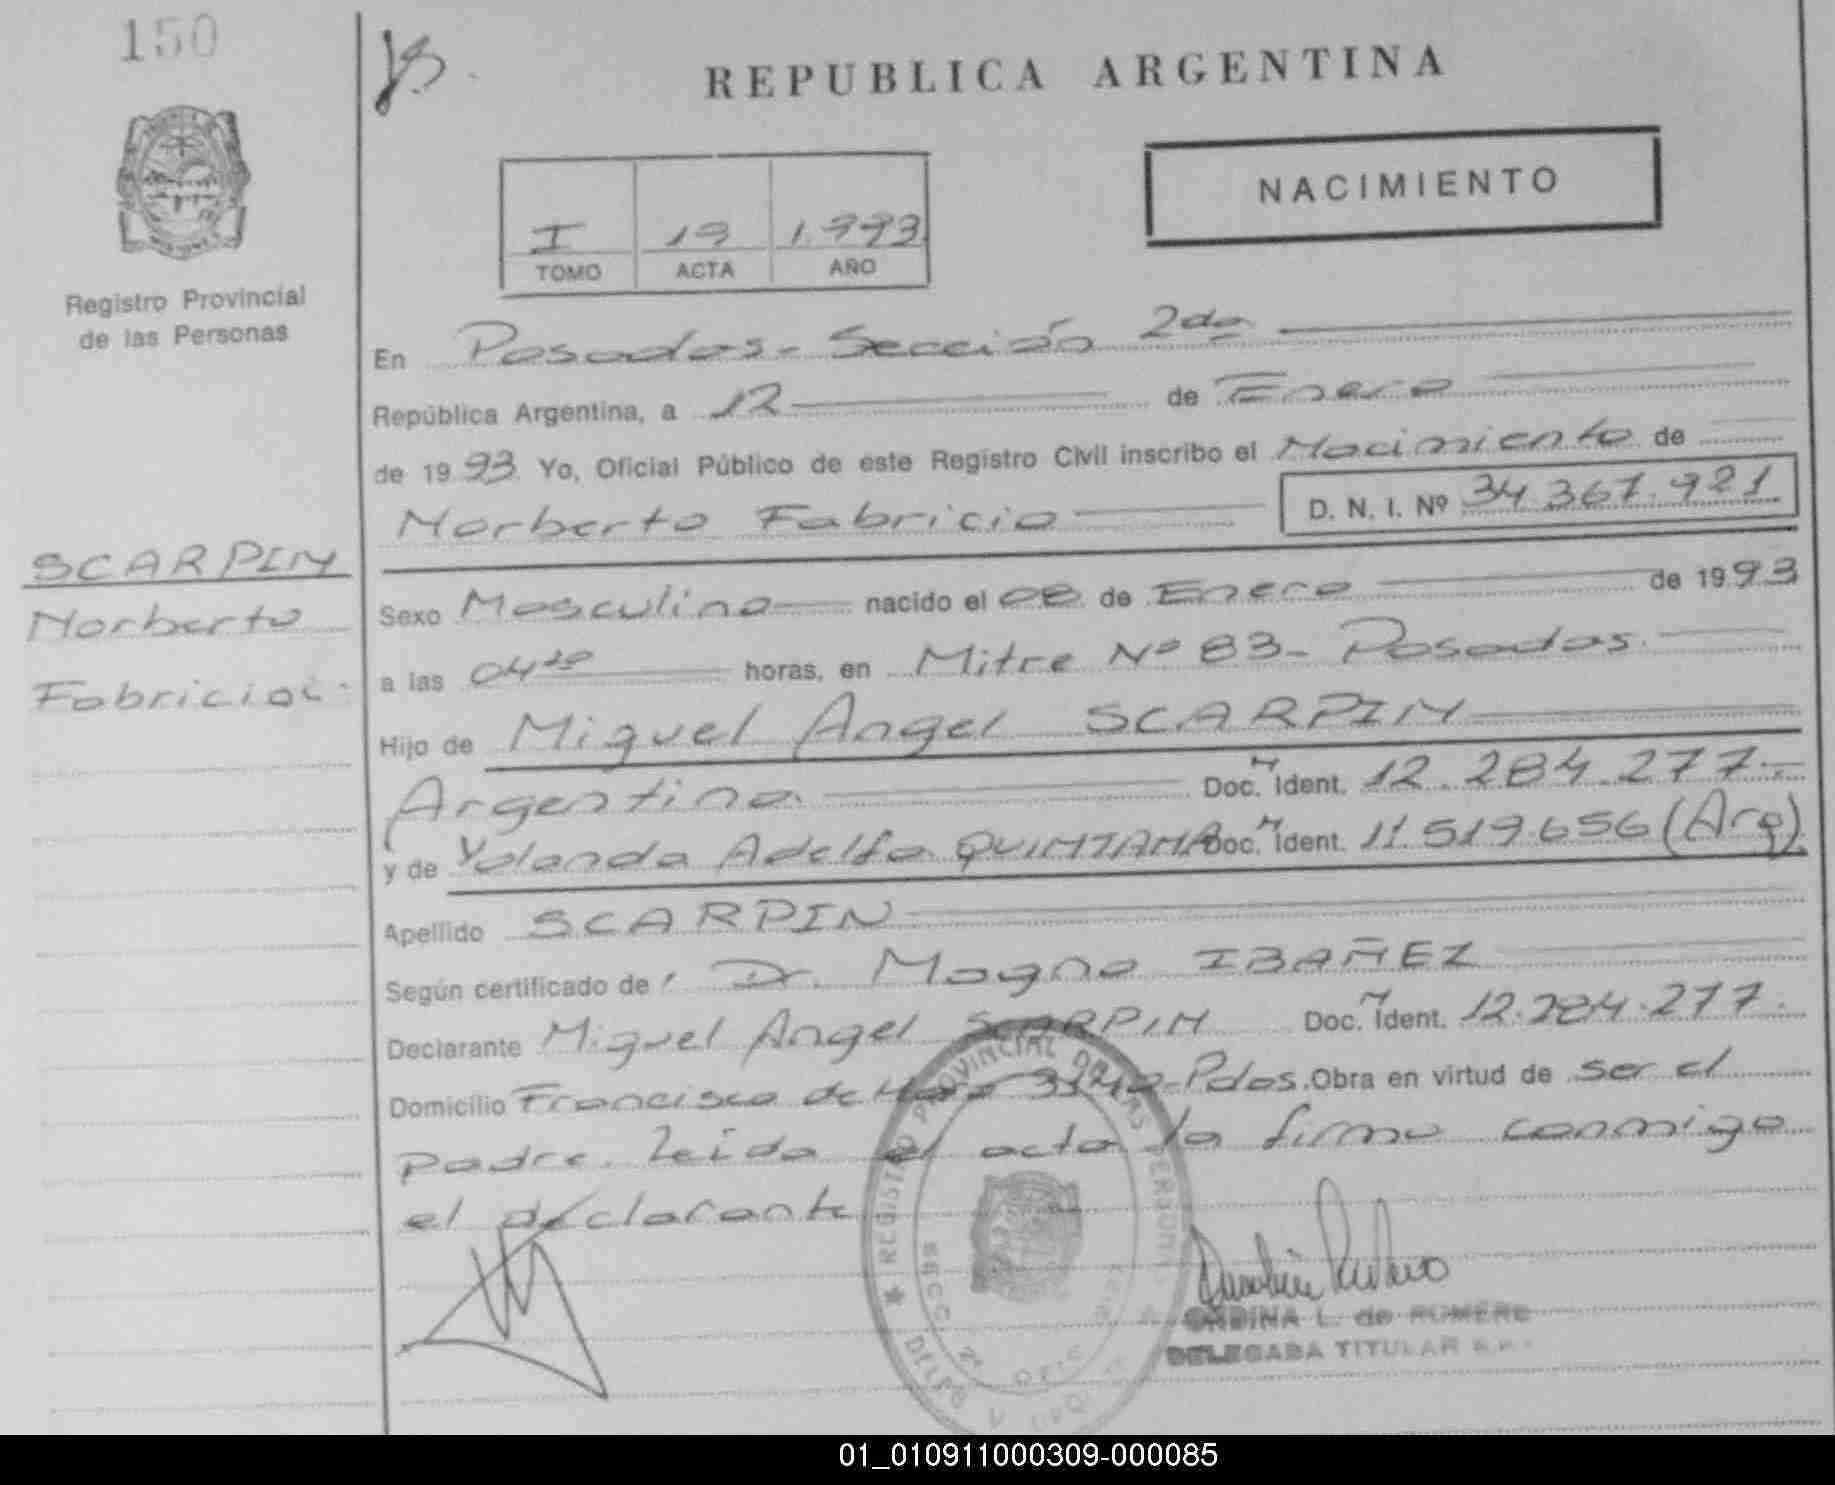 150
REPUBLICA ARGENTINA
NACIMIENTO
I 19 1.993
TOMO ACTA AÑO
Registro Provincial
de las Personas
En Posadas - Sección 2da
República Argentina, a 12 de Enero
de 1993 Yo, Oficial Público de este Registro Civil inscribo el Nacimiento de
Norberto Fabricio D. N. I. Nº 34.367.921
SCARPIN
Norberto
Fabricio
Sexo Masculino nacido el 08 de Enero de 1993
a las 04 horas, en Mitre Nº 83 - Posadas.
Hijo de Miguel Angel SCARPIN
Argentino. Doc. Ident. 12.284.277.-
y de Yolanda Adelfa QUINTANA Doc. Ident. 11.519.656 (Arg)
Apellido SCARPIN
Según certificado de: Dr. Magno IBAÑEZ
Declarante Miguel Angel SCARPIN Doc. Ident. 12.284.277.
Domicilio Francisco de Haro - Pdas. Obra en virtud de ser el
padre. Leída el acta la firma conmigo
el declarante
REGISTRO PROVINCIAL DE LAS PERSONAS
L. de ROMERO
DELEGADA TITULAR
01_010911000309-000085